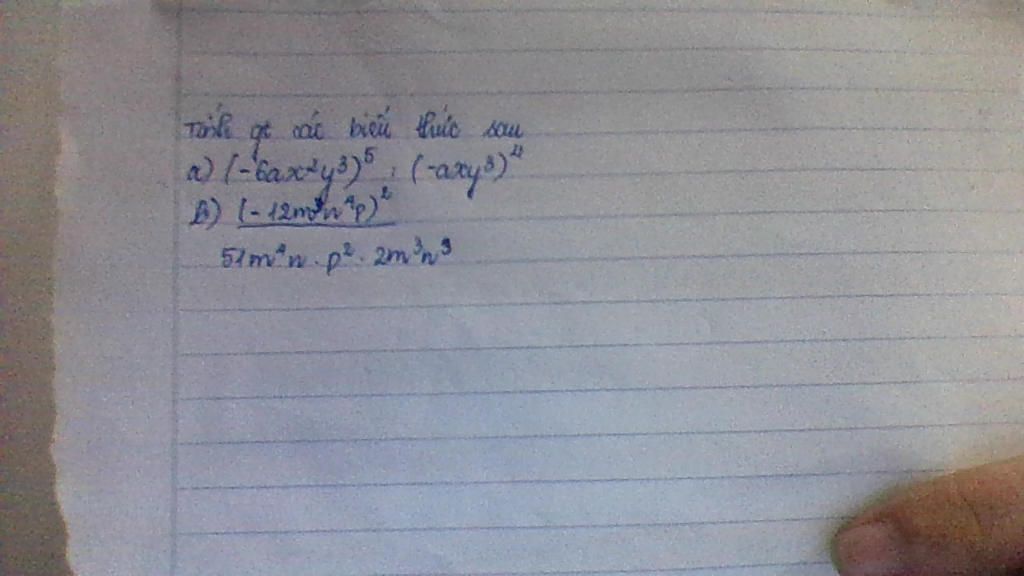 Tính gt các biểu thức sau
a) (-6ax²y³)⁵ : (-axy³)⁴
b) (-12m³n⁴p)²
51m⁴n . p² . 2m³n³